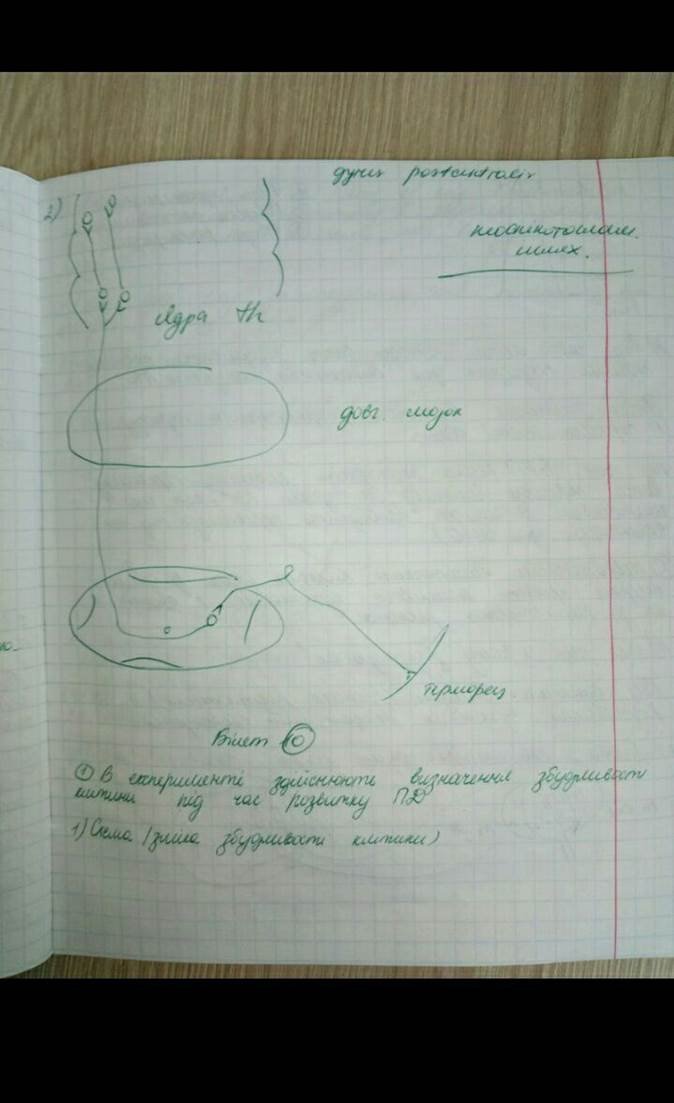 2)
gyrus postcentralis
шлях.
Ядра th
довг. мозок
терморец
Білет 10
① В експерименті здійснюють визначення збудливості
клітини під час розвитку ПД
1) Схема (зміна збудливості клітини)